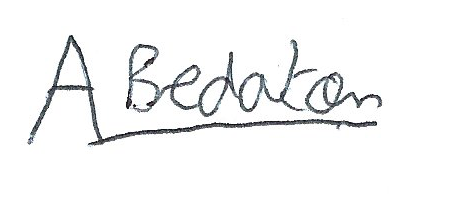 A Bedaton